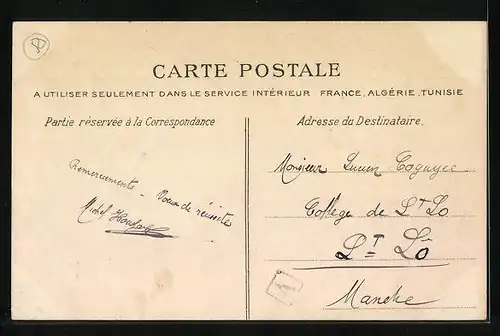 CARTE POSTALE
A UTILISER SEULEMENT DANS LE SERVICE INTÉRIEUR FRANCE, ALGÉRIE, TUNISIE
Partie réservée à la Correspondance
Adresse du Destinataire.
Remerciements - Voeux de réussite
Michel
Monsieur
Collège de St Lo
St Lô
Manche